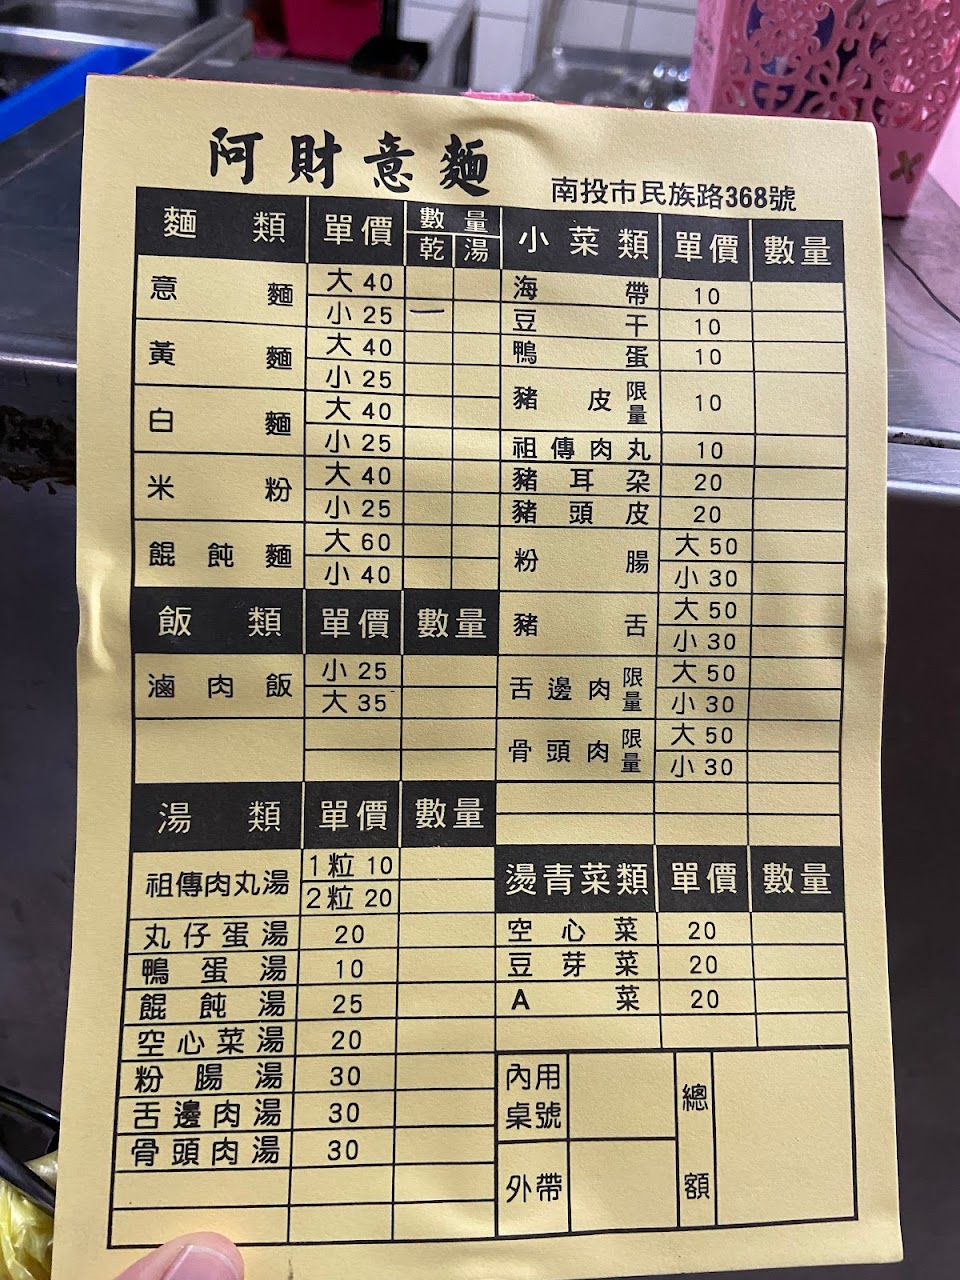 阿財意麵
南投市民族路368號
麵類 單價 數量 乾 湯
意麵 大40
小25 一
黃麵 大40
小25
白麵 大40
小25
米粉 大40
小25
餛飩麵 大60
小40
飯類 單價 數量
滷肉飯 小25
大35
湯類 單價 數量
祖傳肉丸湯 1粒10
2粒20
丸仔蛋湯 20
鴨蛋湯 10
餛飩湯 25
空心菜湯 20
粉腸湯 30
舌邊肉湯 30
骨頭肉湯 30
小菜類 單價 數量
海帶 10
豆干 10
鴨蛋 10
豬皮限量 10
祖傳肉丸 10
豬耳朶 20
豬頭皮 20
粉腸 大50
小30
豬舌 大50
小30
舌邊肉限量 大50
小30
骨頭肉限量 大50
小30
燙青菜類 單價 數量
空心菜 20
豆芽菜 20
A菜 20
內用桌號
外帶
總額